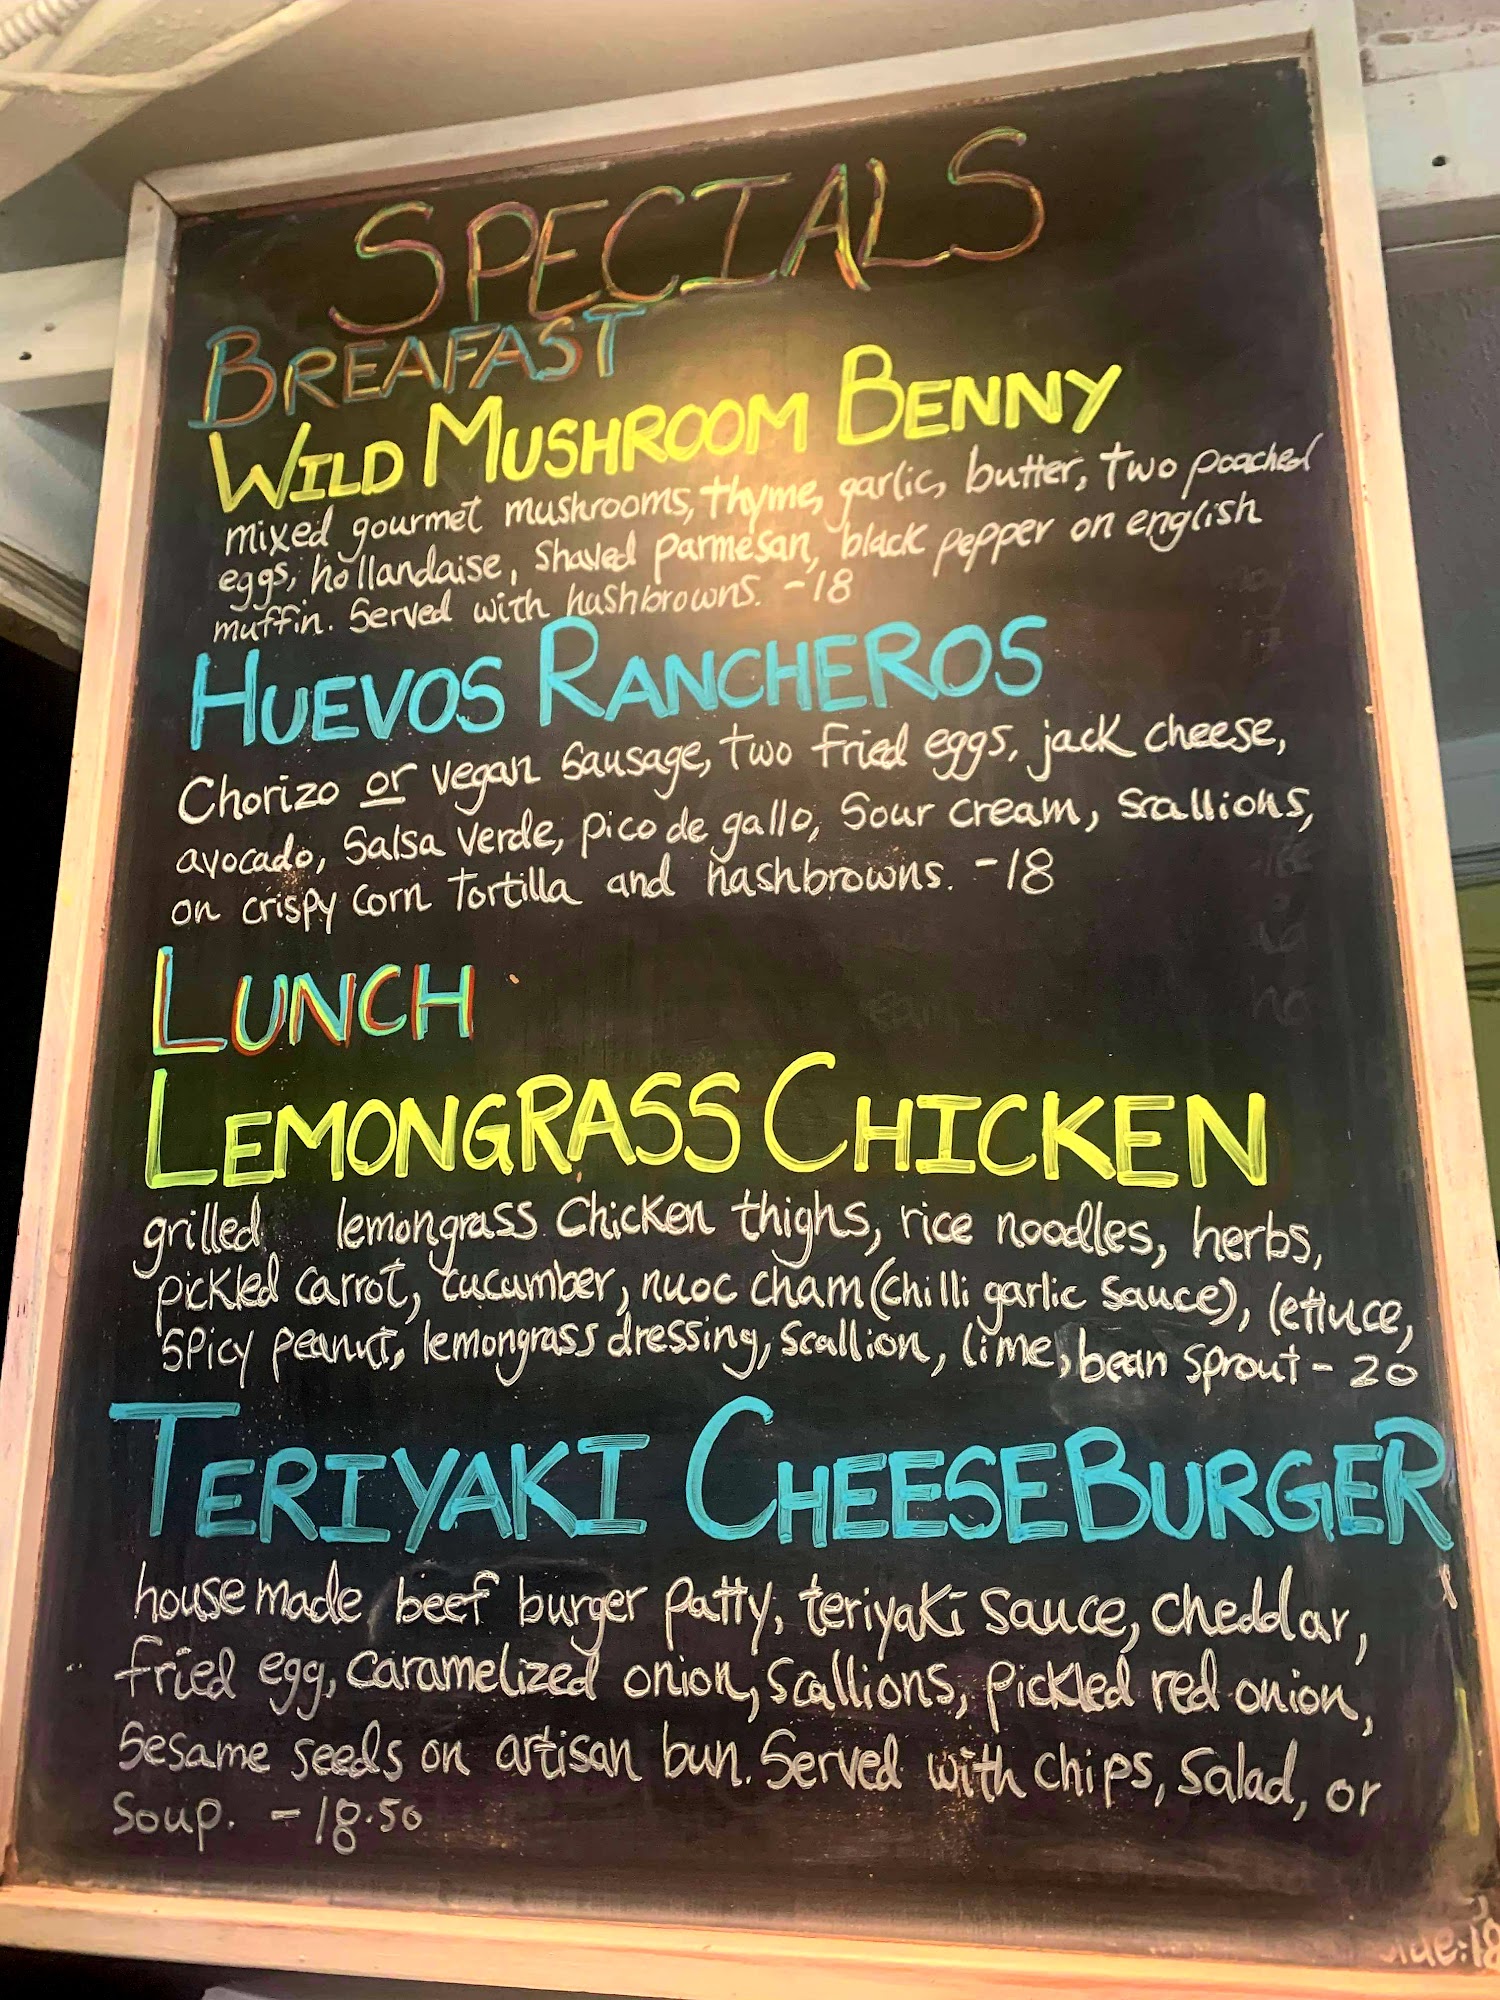 SPECIALS
BREAFAST
WILD MUSHROOM BENNY
mixed gourmet mushrooms, thyme, garlic, butter, two poached
eggs, hollandaise, shaved parmesan, black pepper on english
muffin. Served with hashbrowns. - 18
HUEVOS RANCHEROS
Chorizo or vegan sausage, two fried eggs, jack cheese,
avocado, salsa verde, pico de gallo, sour cream, scallions,
on crispy corn tortilla and hashbrowns. - 18
LUNCH
LEMONGRASS CHICKEN
grilled lemongrass chicken thighs, rice noodles, herbs,
pickled carrot, cucumber, nuoc cham (chilli garlic sauce), lettuce,
spicy peanut, lemongrass dressing, scallion, lime, bean sprout - 20
TERIYAKI CHEESEBURGER
house made beef burger patty, teriyaki sauce, cheddar,
fried egg, caramelized onion, scallions, pickled red onion,
sesame seeds on artisan bun. Served with chips, salad, or
soup. - 18.50